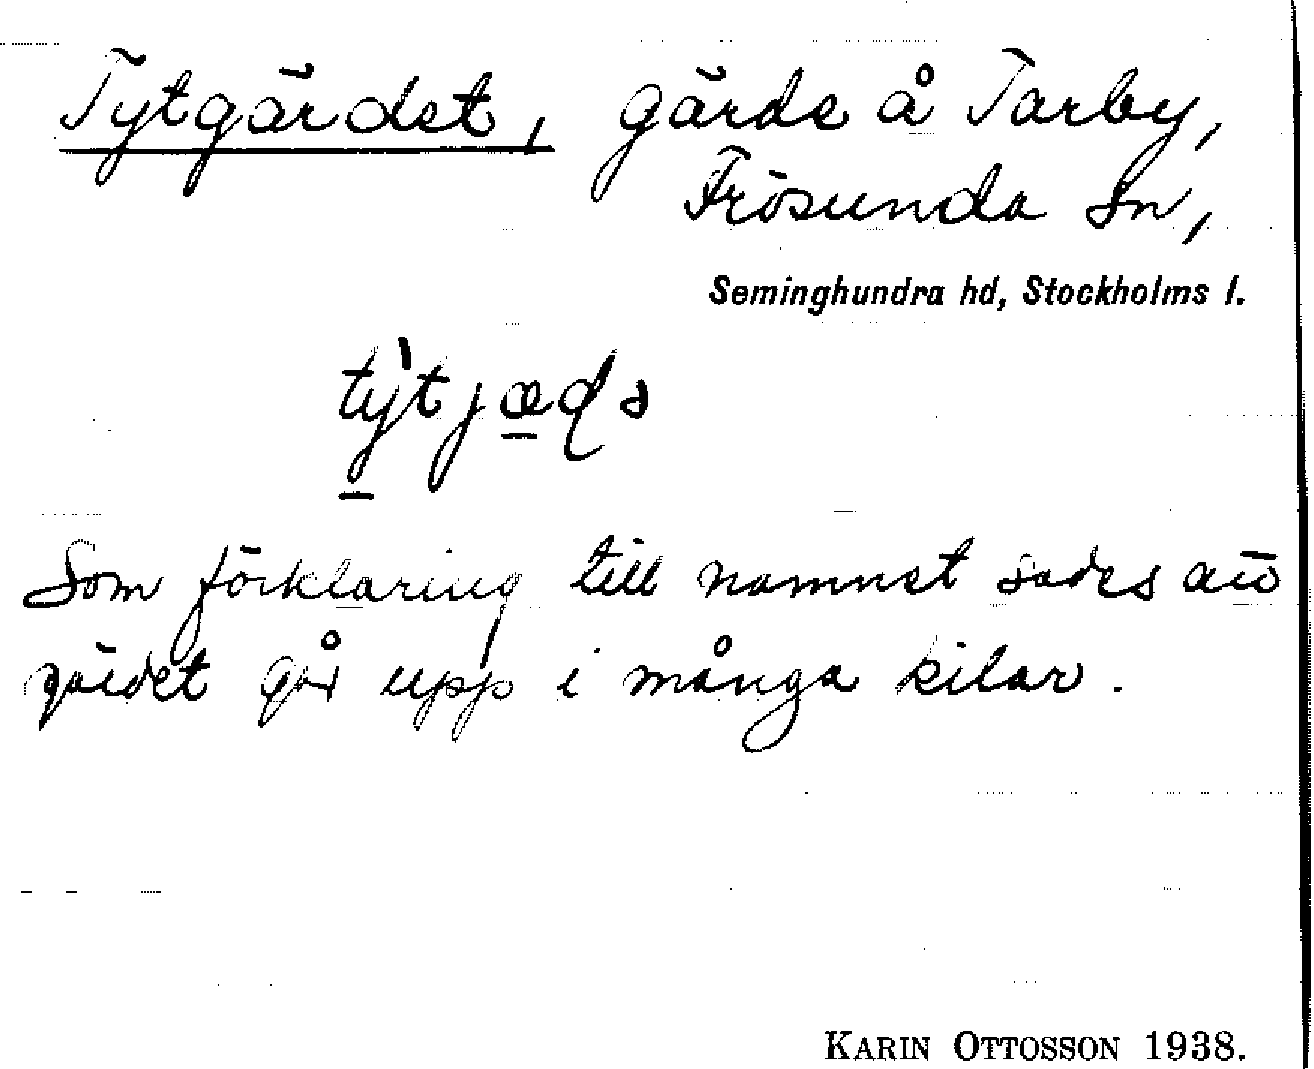 Tytgärdet, gärde å Tarby,
Frösunda sn,
Seminghundra hd, Stockholms l.
tỳ̠tjæ̠ɖə
Som förklaring till namnet sades att
gärdet går upp i många kilar.
KARIN OTTOSSON 1938.